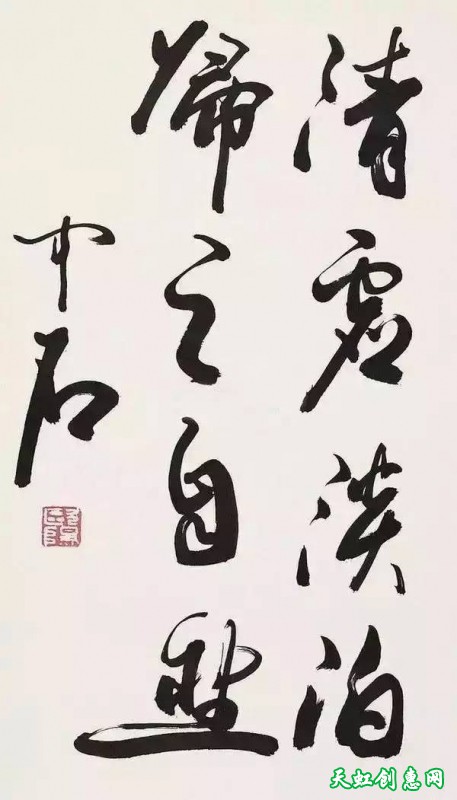 清虚淡泊
歸之自然
中石
天虹创惠网